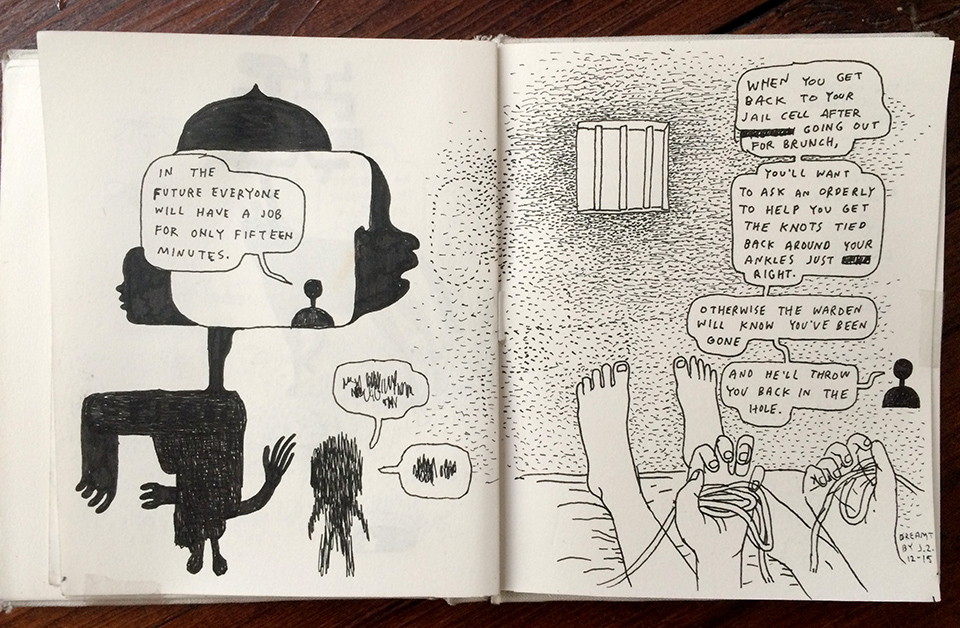 IN THE
FUTURE EVERYONE
WILL HAVE A JOB
FOR ONLY FIFTEEN
MINUTES.
WHEN YOU GET
BACK TO YOUR
JAIL CELL AFTER
GOING OUT
FOR BRUNCH,
YOU'LL WANT
TO ASK AN ORDERLY
TO HELP YOU GET
THE KNOTS TIED
BACK AROUND YOUR
ANKLES JUST
RIGHT.
OTHERWISE THE WARDEN
WILL KNOW YOU'VE BEEN
GONE
AND HE'LL THROW
YOU BACK IN THE
HOLE.
DREAMT
BY J.Z.
12-15